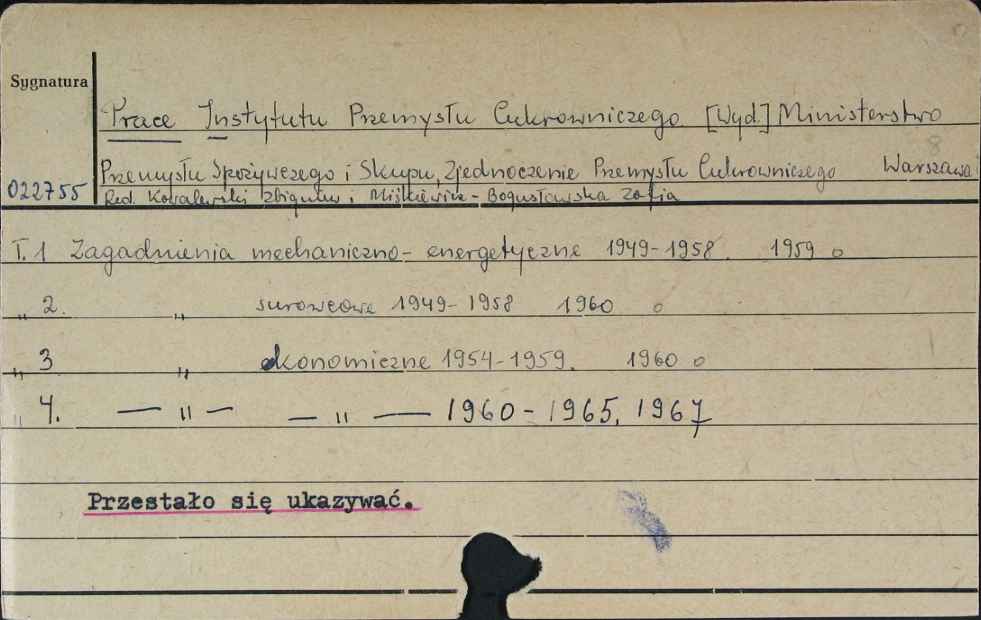 Sygnatura
Prace Instytutu Przemysłu Cukrowniczego [Wyd.] Ministerstwo
Przemysłu Spożywczego i Skupu, Zjednoczenie Przemysłu Cukrowniczego Warszawa
022755 Red. Kowalewski Zbigniew i Miśkiewicz-Bogusławska Zofia
T. 1 Zagadnienia mechaniczno-energetyczne 1949-1958. 1959 o
„ 2. „ surowcowe 1949-1958 1960 o
„ 3 „ ekonomiczne 1954-1959. 1960 o
„ 4. — „ — — „ — 1960-1965, 1967
Przestało się ukazywać.